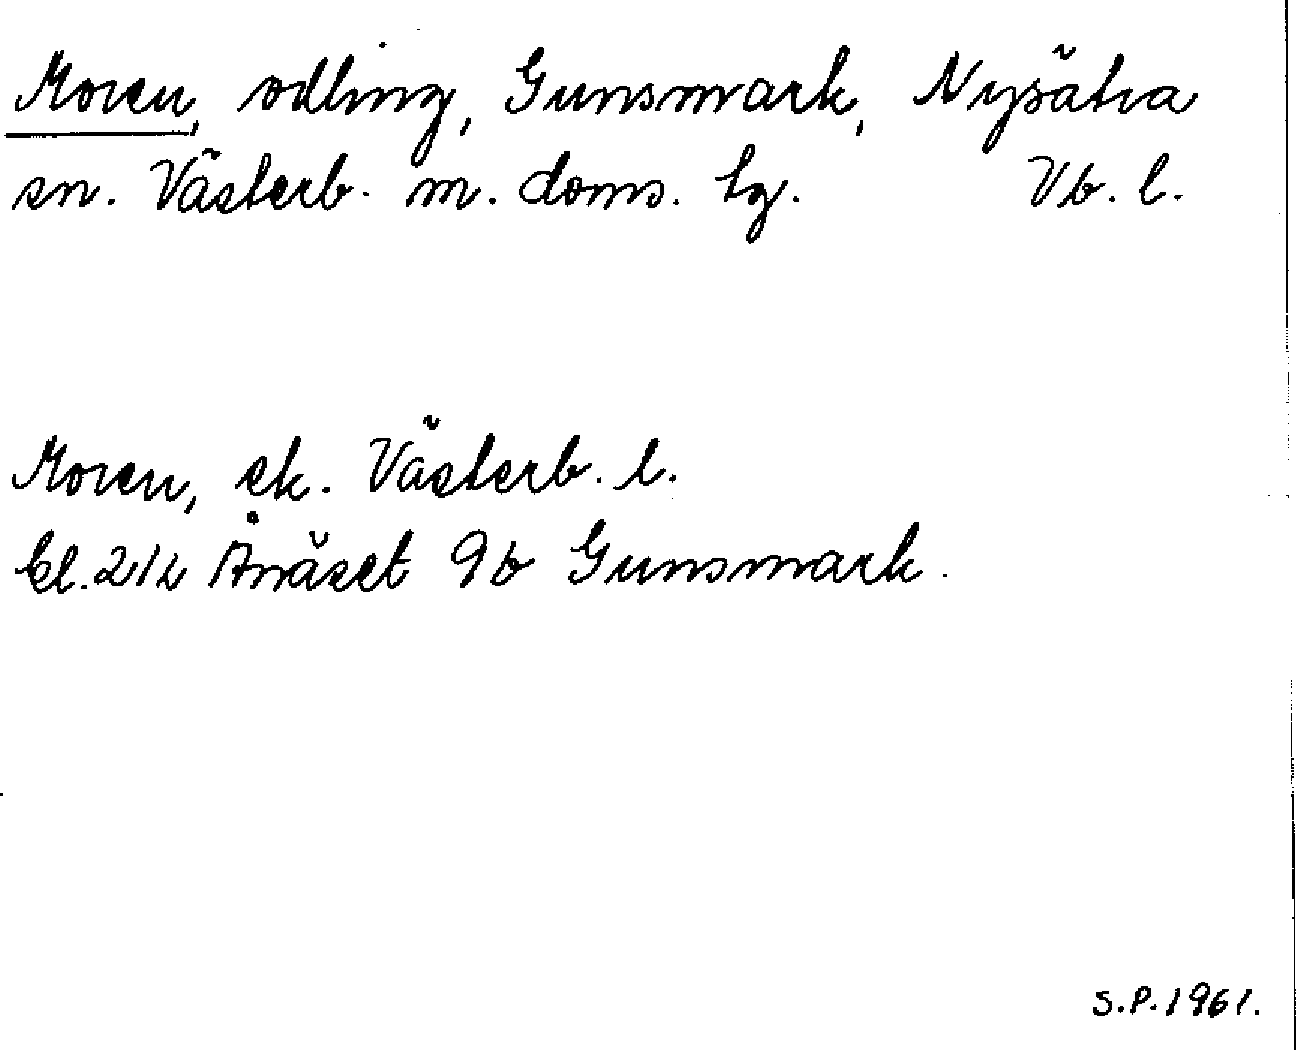 Moren, odling, Gunsmark, Nysätra
sn. Västerb. m. doms. tg. Vb. l.
Moren, ek. Västerb. l.
bl. 21 k Ånäset 9b Gunsmark.
S.P. 1961.